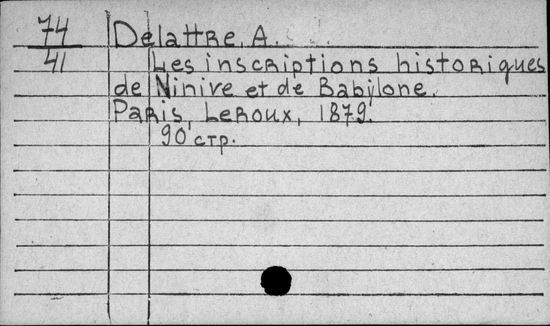 74 Delattre, A.
41 Les inscriptions historiques
de Ninive et de Babylone.
Paris, Leroux, 1879.
90 стр.